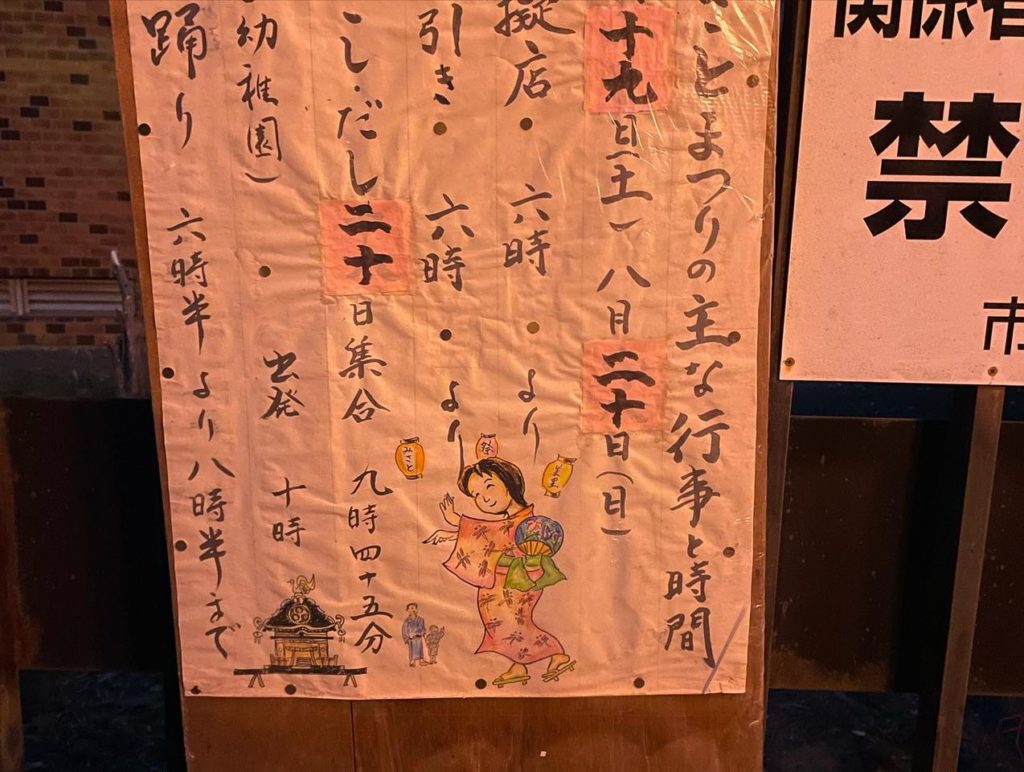 さとまつりの主な行事と時間
十九日(土)八月二十日(日)
擬店 六時より
引き 六時より
こしだし二十日集合 九時四十五分
幼稚園) 出発 十時
踊り 六時半より八時半まで
みさと
祭
美里
関係者
禁
市